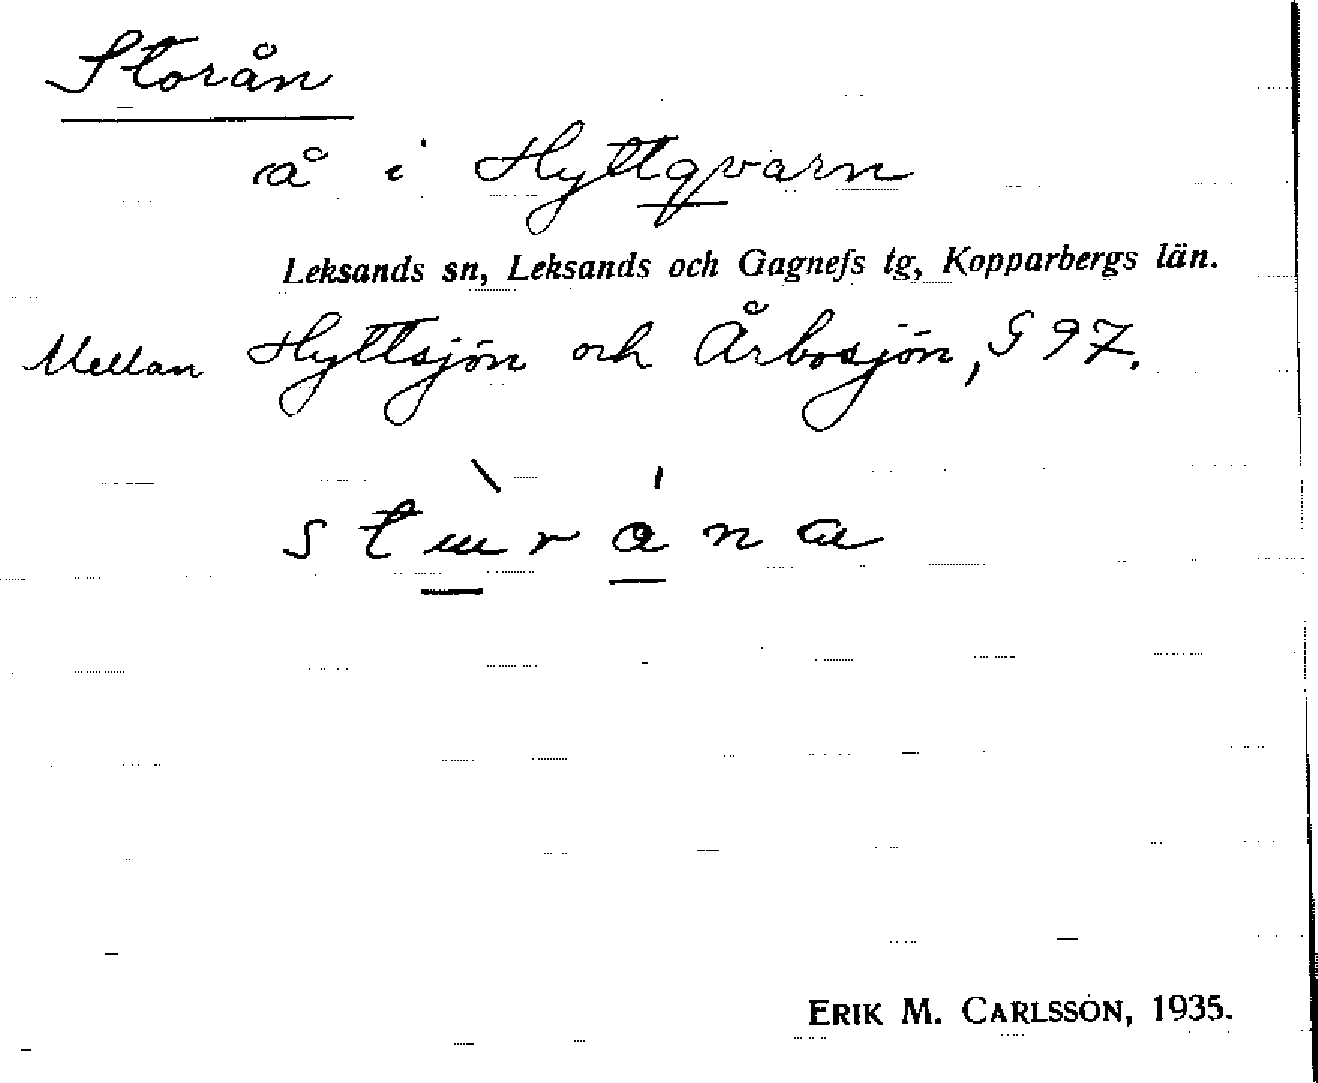 Storån
å i Hyttqvarn
Leksands sn, Leksands och Gagnefs tg, Kopparbergs län.
Mellan Hyttsjön och Årbosjön, G 97.
stɯ̀rána
ERIK M. CARLSSON, 1935.